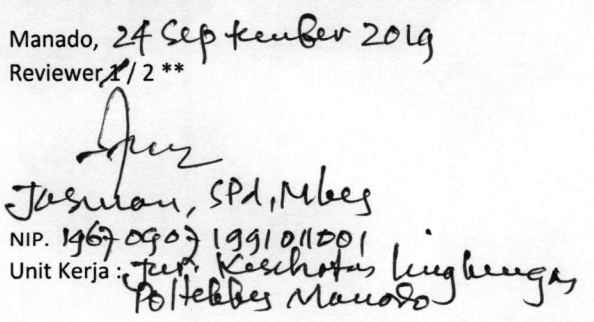 Manado, 24 September 2019
Reviewer 1 / 2 **
Jasman, SPd, MKes
NIP. 19670907 199101 1001
Unit Kerja : Jur. Kesehatan Lingkungan
Poltekkes Manado